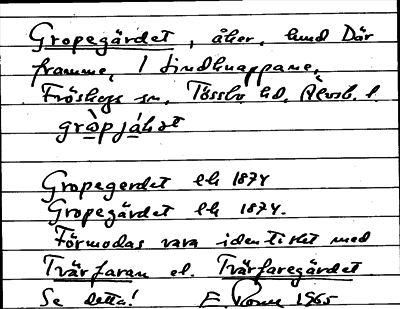 Gropegärdet, åker, hmd Där
framme, i Lindknappane,
Fröskogs sn, Tössbo hd, Älvsb. l.
gròpjáḷət
Gropegerdet lk 1874
Gropegärdet lk 1874.
Förmodas vara identiskt med
Tvärfaran el. Tvärfaregärdet
Se detta! E. 1965